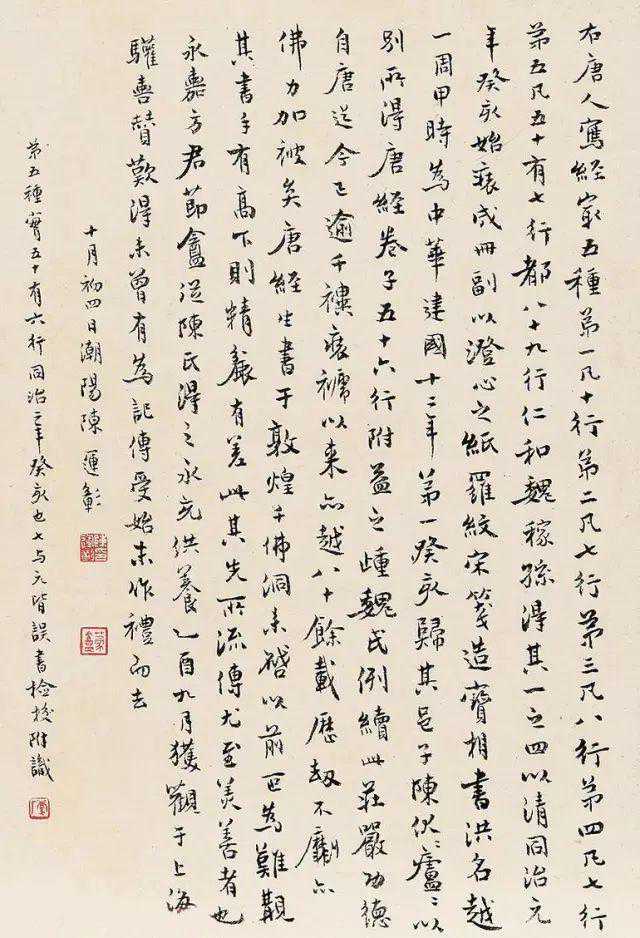 右唐人寫經家五種第一凡十行第二凡七行第三凡八行第四凡七行
第五凡五十有七行都八十九行仁和魏稼孫得其一之四以清同治元
年癸亥始裱成冊副以澄心之紙羅紋宋箋造寶相書洪名越
一周甲時為中華建國十二年第一癸亥歸其邑子陳伏廬〻以
別所得唐經卷子五十六行附益之踵魏氏例續此莊嚴功德
自唐迄今已逾千禩裱褫以來亦越八十餘載歷劫不劘亦
佛力加被矣唐經生書于敦煌千佛洞未啓以前已為難覯
其書手有高下則精麤有差此其先所流傳尤至美善者也
永嘉方君節盦從陳氏得之永充供養乙酉九月獲觀于上海
驩喜贊歎得未曾有為記傳受始末作禮而去
十月初四日潮陽陳運彰
第五種實五十有六行同治二年癸亥也七与元皆誤書檢校附識